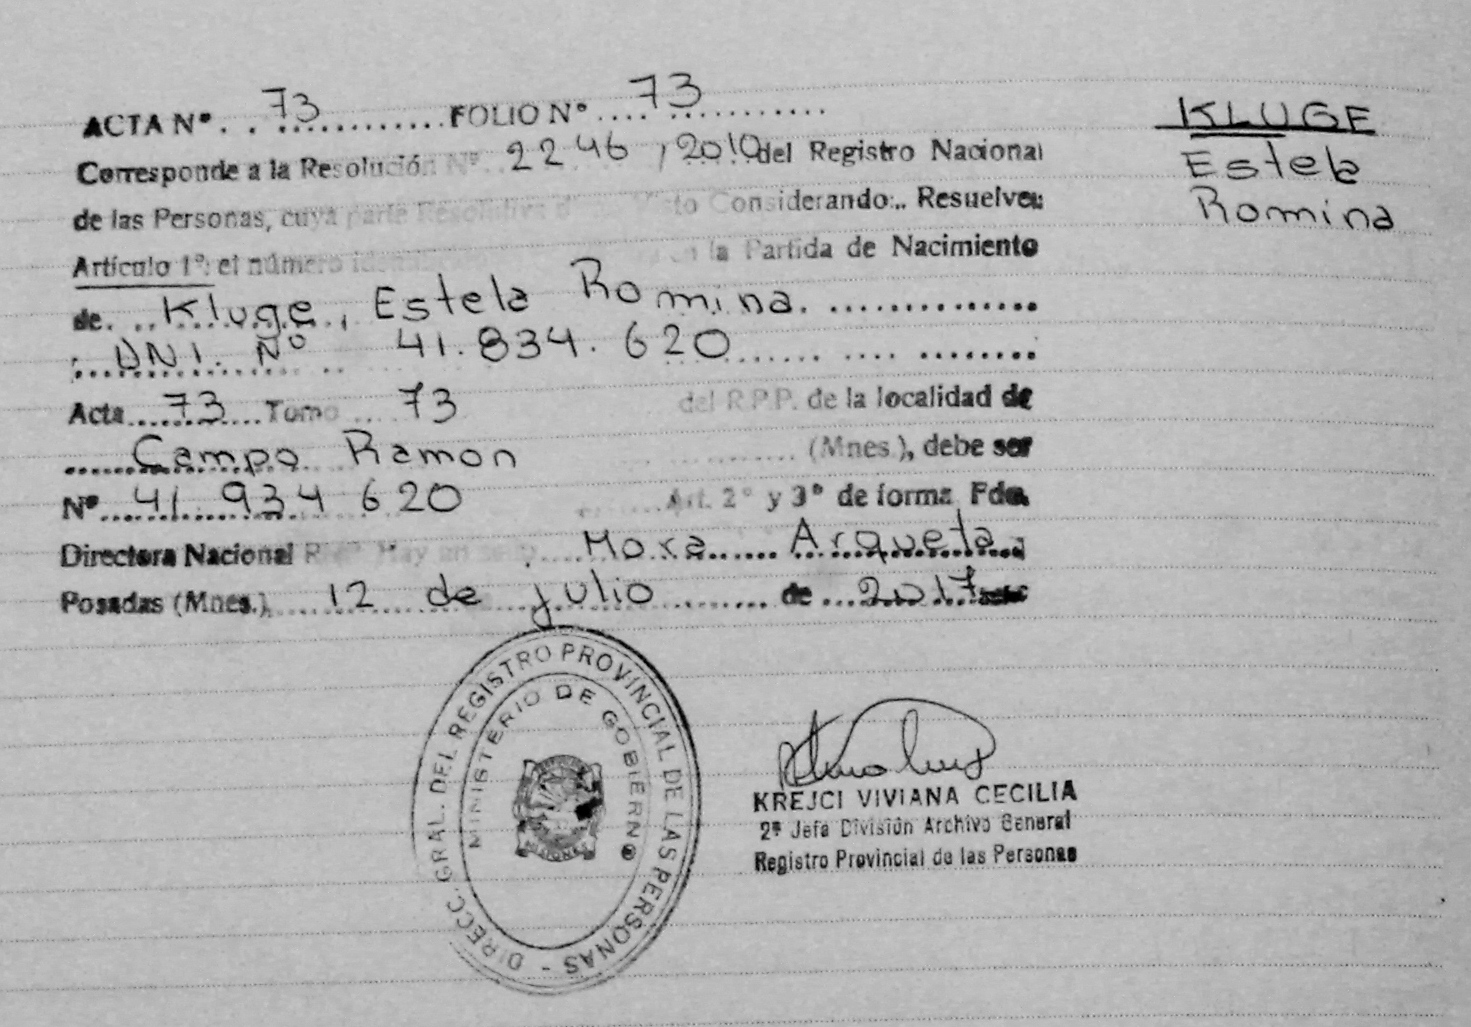 ACTA Nº. . 73 FOLIO Nº 73
Corresponde a la Resolución Nº 2246 / 2010 del Registro Nacional
de las Personas, cuya parte Resolutiva Visto Considerando:.. Resuelve:
Artículo 1º: el número la Partida de Nacimiento
de. Kluge, Estela Romina.
DNI. Nº 41.834.620
Acta 73 Tomo 73 del R.P.P. de la localidad de
Campo Ramon (Mnes.), debe ser
Nº 41 934 620 Art. 2º y 3º de forma Fdo.
Directora Nacional Hay un Mora Arqueta
Posadas (Mnes.), 12 de julio de 2017
KLUGE
Estela
Romina
DIRECC. GRAL. DEL REGISTRO PROVINCIAL DE LAS PERSONAS -
MINISTERIO DE GOBIERNO
MISIONES
KREJCI VIVIANA CECILIA
2ª Jefa División Archivo General
Registro Provincial de las Personas